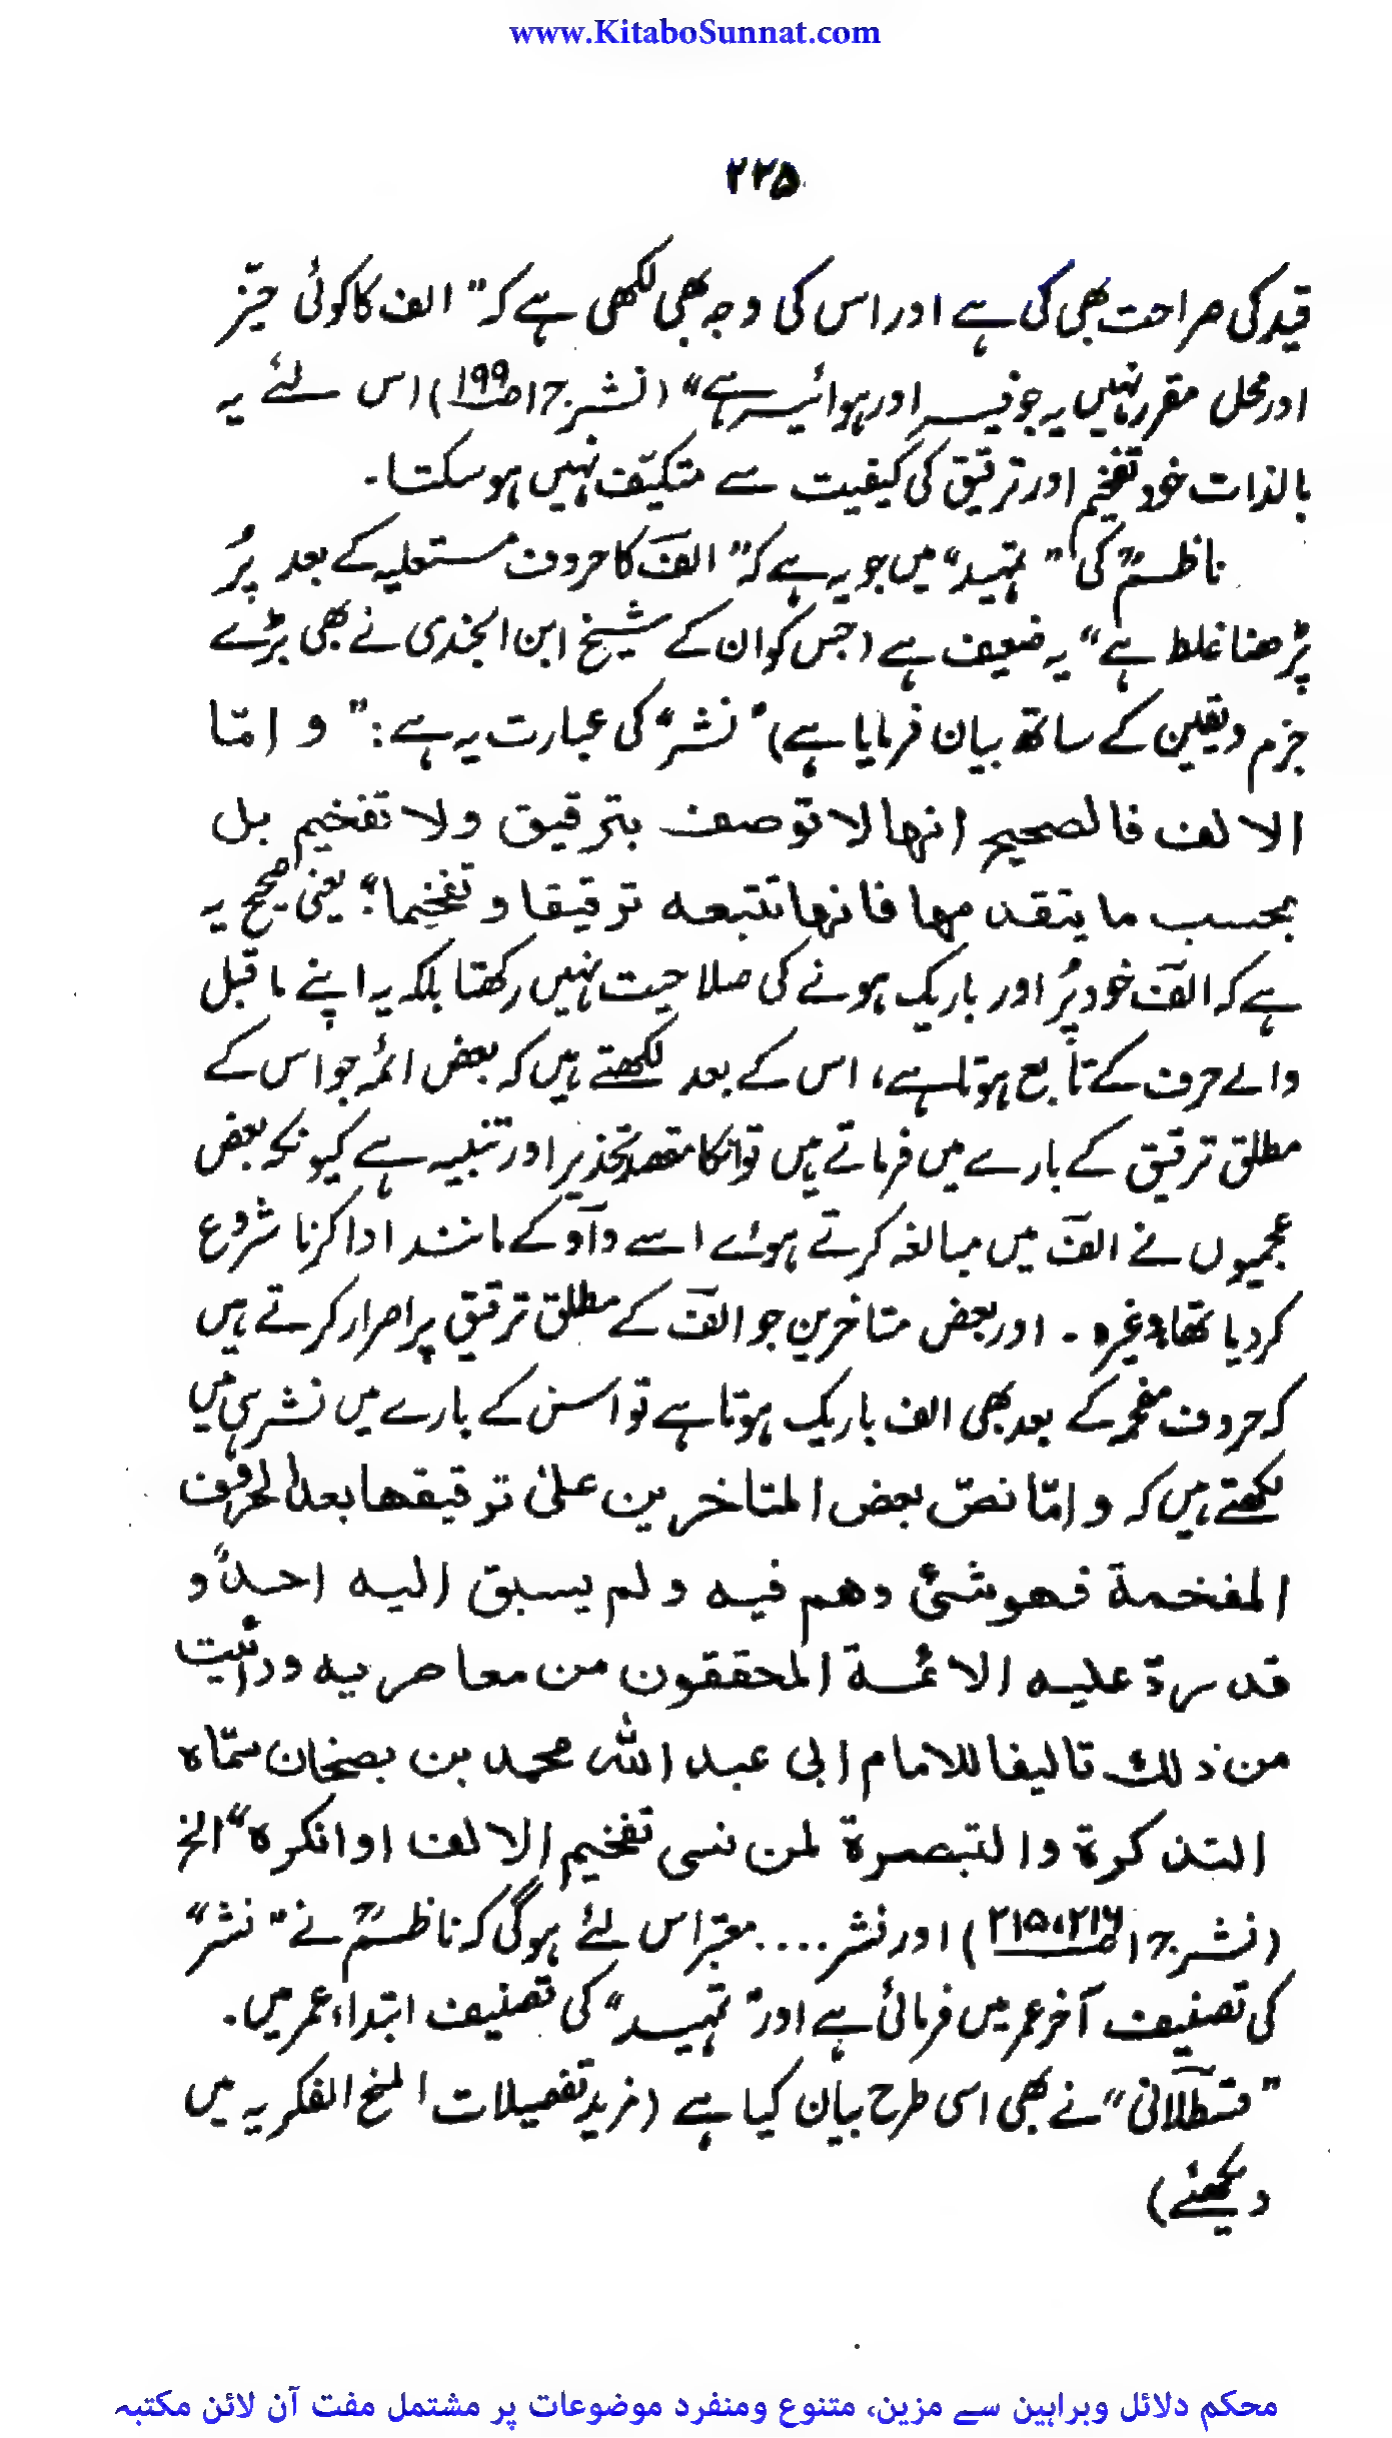 www.KitaboSunnat.com
۲۲۵
قید کی صراحت بھی کی ہے اور اس کی وجہ بھی لکھی ہے کہ ”الف کا کوئی حیّز
اور محل مقرر نہیں یہ جوفیہ اور ہوائیہ ہے“ (نشر ج۱ ص۱۹۹) اس لئے یہ
بالذات خود تفخیم اور ترقیق کی کیفیت سے متکیّف نہیں ہو سکتا۔
ناظمؒ کی ”تمہید“ میں جو یہ ہے کہ ”الفؔ کا حروف مستعلیہ کے بعد پُر
پڑھنا غلط ہے“ یہ ضعیف ہے (جس کو ان کے شیخ ابن الجندی نے بھی بڑے
جزم ویقین کے ساتھ بیان فرمایا ہے) ”نشر“ کی عبارت یہ ہے: ”و امّا
الالف فالصحیح انھا لا توصف بترقیق ولا تفخیم بل
بحسب ما یتقدمھا فانھا تتبعہ ترقیقا و تفخیما“؛ یعنی صحیح یہ
ہے کہ الفؔ خود پُر اور باریک ہونے کی صلاحیت نہیں رکھتا بلکہ یہ اپنے ماقبل
والے حرف کے تابع ہوتا ہے، اس کے بعد لکھتے ہیں کہ بعض ائمہ جو اس کے
مطلق ترقیق کے بارے میں فرماتے ہیں تو انکا مقصد تحذیر اور تنبیہ ہے کیونکہ بعض
عجمیوں نے الفؔ میں مبالغہ کرتے ہوئے اسے واؔو کے مانند ادا کرنا شروع
کر دیا تھا وغیرہ ۔ اور بعض متاخرین جو الفؔ کے مطلق ترقیق پر اصرار کرتے ہیں
کہ حروف مفخمہ کے بعد بھی الف باریک ہوتا ہے تو اس کے بارے میں نشر ہی میں
لکھتے ہیں کہ و امّا نصّ بعض المتاخرین علیٰ ترقیقھا بعد الحروف
المفخمة فھو شئ وھم فیہ ولم یسبق الیہ احدٌ و
قد ردّ علیہ الائمة المحققون من معاصریہ ورأیت
من ذلک تالیفا للامام ابی عبد اللّٰہ محمد بن بصخان سمّاہ
التذکرة والتبصرة لمن نسی تفخیم الالف او انکرہ“ الخ
(نشر ج۱ ص۲۱۵،۲۱۶) اور نشر .... معتبر اس لئے ہوگی کہ ناظمؒ نے ”نشر“
کی تصنیف آخر عمر میں فرمائی ہے اور ”تمہید“ کی تصنیف ابتداء عمر میں۔
”قسطلاؔنی“ نے بھی اسی طرح بیان کیا ہے (مزید تفصیلات المنح الفکریہ میں
دیکھئے)
محکم دلائل وبراہین سے مزین، متنوع ومنفرد موضوعات پر مشتمل مفت آن لائن مکتبہ